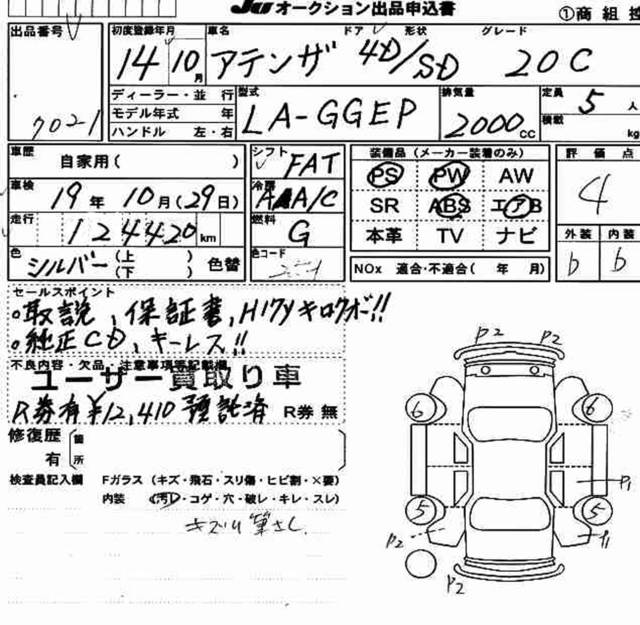 JU オークション出品申込書 ①商 組
出品番号 7021
初度登録年月 14年10月 車名 アテンザ ドア 形状 4D/SD グレード 20C
ディーラー・並行
モデル年式 年
ハンドル 左・右
型式 LA-GGEP 排気量 2000cc 定員 5人
積載 kg
車歴 自家用( ) シフト FAT
車検 19年10月(29日) 冷房 AAC A/C
走行 124420km 燃料 G
色 シルバー (上 下) 色替 色コード
装備品(メーカー装着のみ)
PS PW AW
SR ABS エアB
本革 TV ナビ
NOx 適合・不適合( 年 月)
評価点 4
外装 内装
b b
セールスポイント
。取説、保証書、H17yキロクボ!!
。純正CD、キーレス!!
不良内容・欠品・注意事項等記載欄
ユーザー買取り車
R券有 ¥12,410 預託済 R券無
修復歴 箇所
有
検査員記入欄 Fガラス(キズ・飛石・スリ傷・ヒビ割・×要)
内装 (汚レ・コゲ・穴・破レ・キレ・スレ)
P2 P2
6 6
P1
5 5
P2 P1
P2